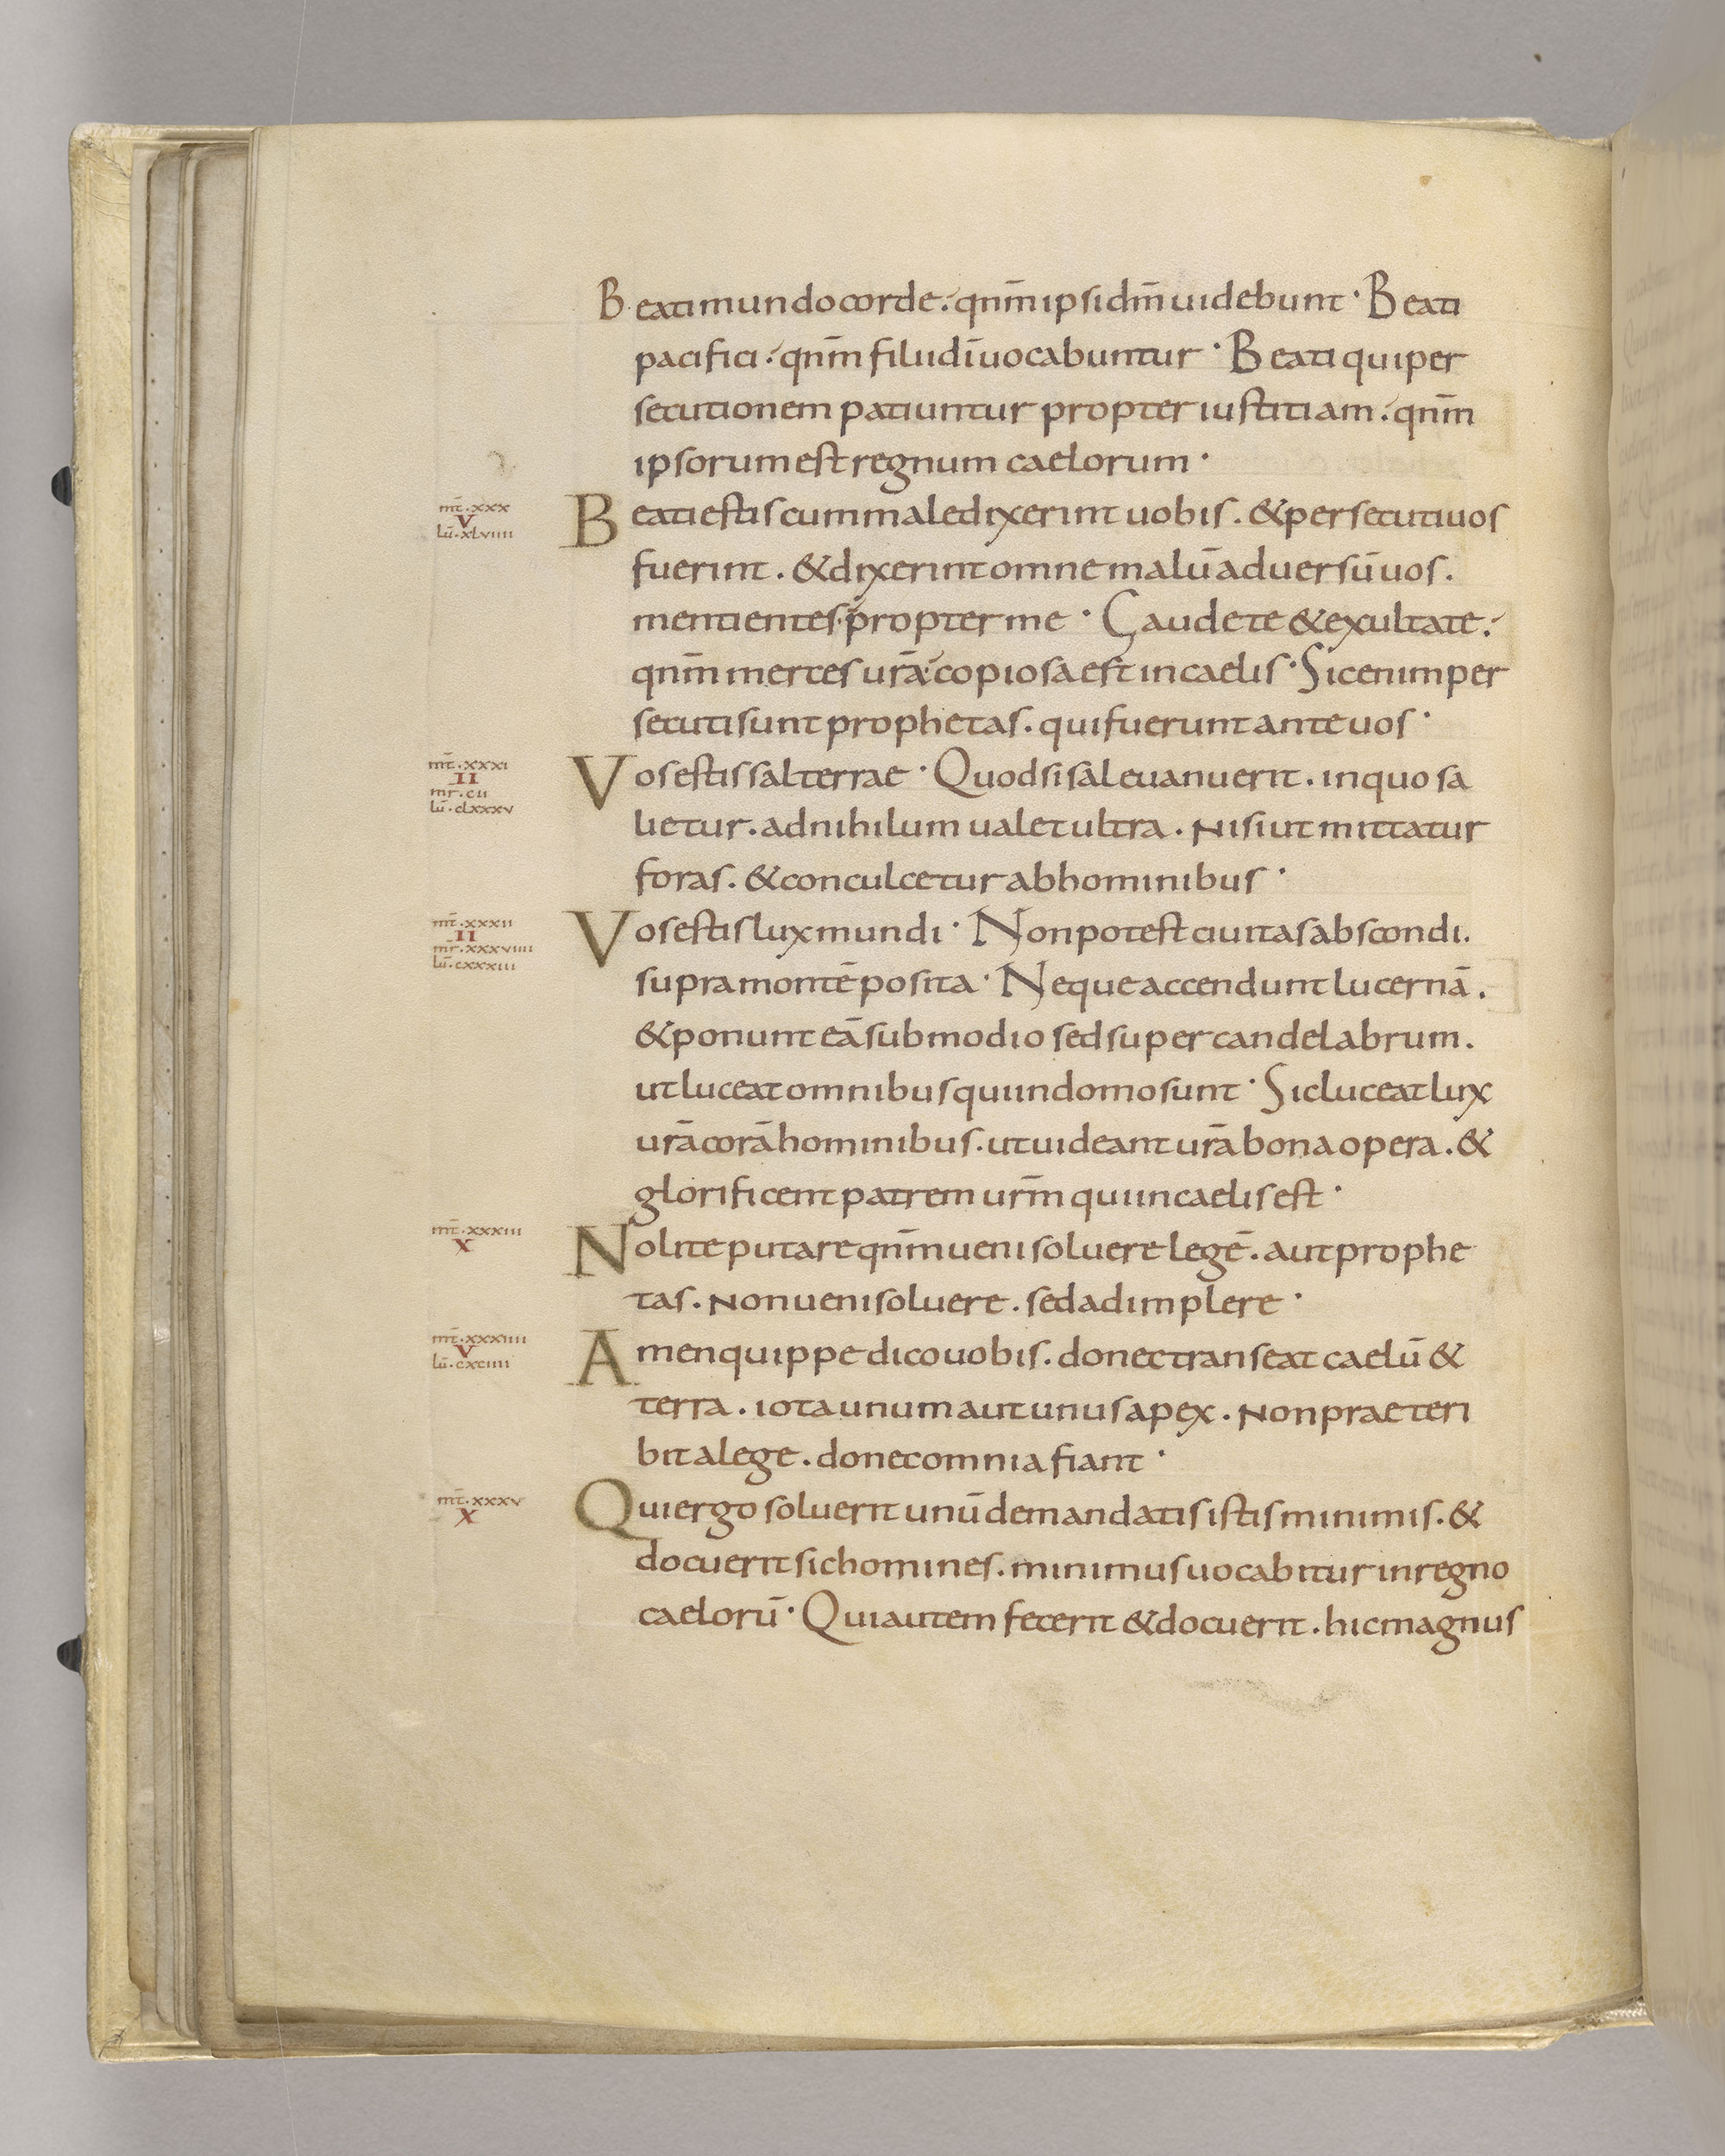 Beati mundo corde. qnm̄ ipsi dm̄ uidebunt · Beati
pacifici. qnm̄ filii dī uocabuntur · Beati qui per
secutionem patiuntur propter iustitiam. qnm̄
ipsorum est regnum caelorum ·
mt̄ · xxx
V
lū · xlviiii
Beati estis cum maledixerint uobis. & persecuti uos
fuerint. & dixerint omne malū aduersū uos.
mentientes propter me · Gaudete & exultate.
qnm̄ merces urā copiosa est in caelis · Sic enim per
secuti sunt prophetas. qui fuerunt ante uos ·
mt̄ · xxxi
II
mr · cii
lū · clxxxv
Vos estis sal terrae · Quod si sal euanuerit. in quo sa
lietur. ad nihilum ualet ultra. Nisi ut mittatur
foras. & conculcetur ab hominibus ·
mt̄ · xxxii
II
mr̄ · xxxviiii
lū · cxxxiii
Vos estis lux mundi · Non potest ciuitas abscondi.
supra montē posita · Neque accendunt lucernā.
& ponunt eā sub modio sed super candelabrum.
ut luceat omnibus qui in domo sunt · Sic luceat lux
urā corā hominibus. ut uideant urā bona opera. &
glorificent patrem urm̄ qui in caelis est ·
mt̄ · xxxiii
X
Nolite putare qnm̄ ueni soluere legē. aut prophe
tas. Non ueni soluere. sed adimplere ·
mt̄ · xxxiiii
V
lū · cxciiii
Amen quippe dico uobis. donec transeat caelū &
terra. iota unum aut unus apex. Non praeteri
bit a lege. donec omnia fiant ·
mt̄ · xxxv
X
Qui ergo soluerit unū de mandatis istis minimis. &
docuerit sic homines. minimus uocabitur in regno
caelorū · Qui autem fecerit & docuerit. hic magnus